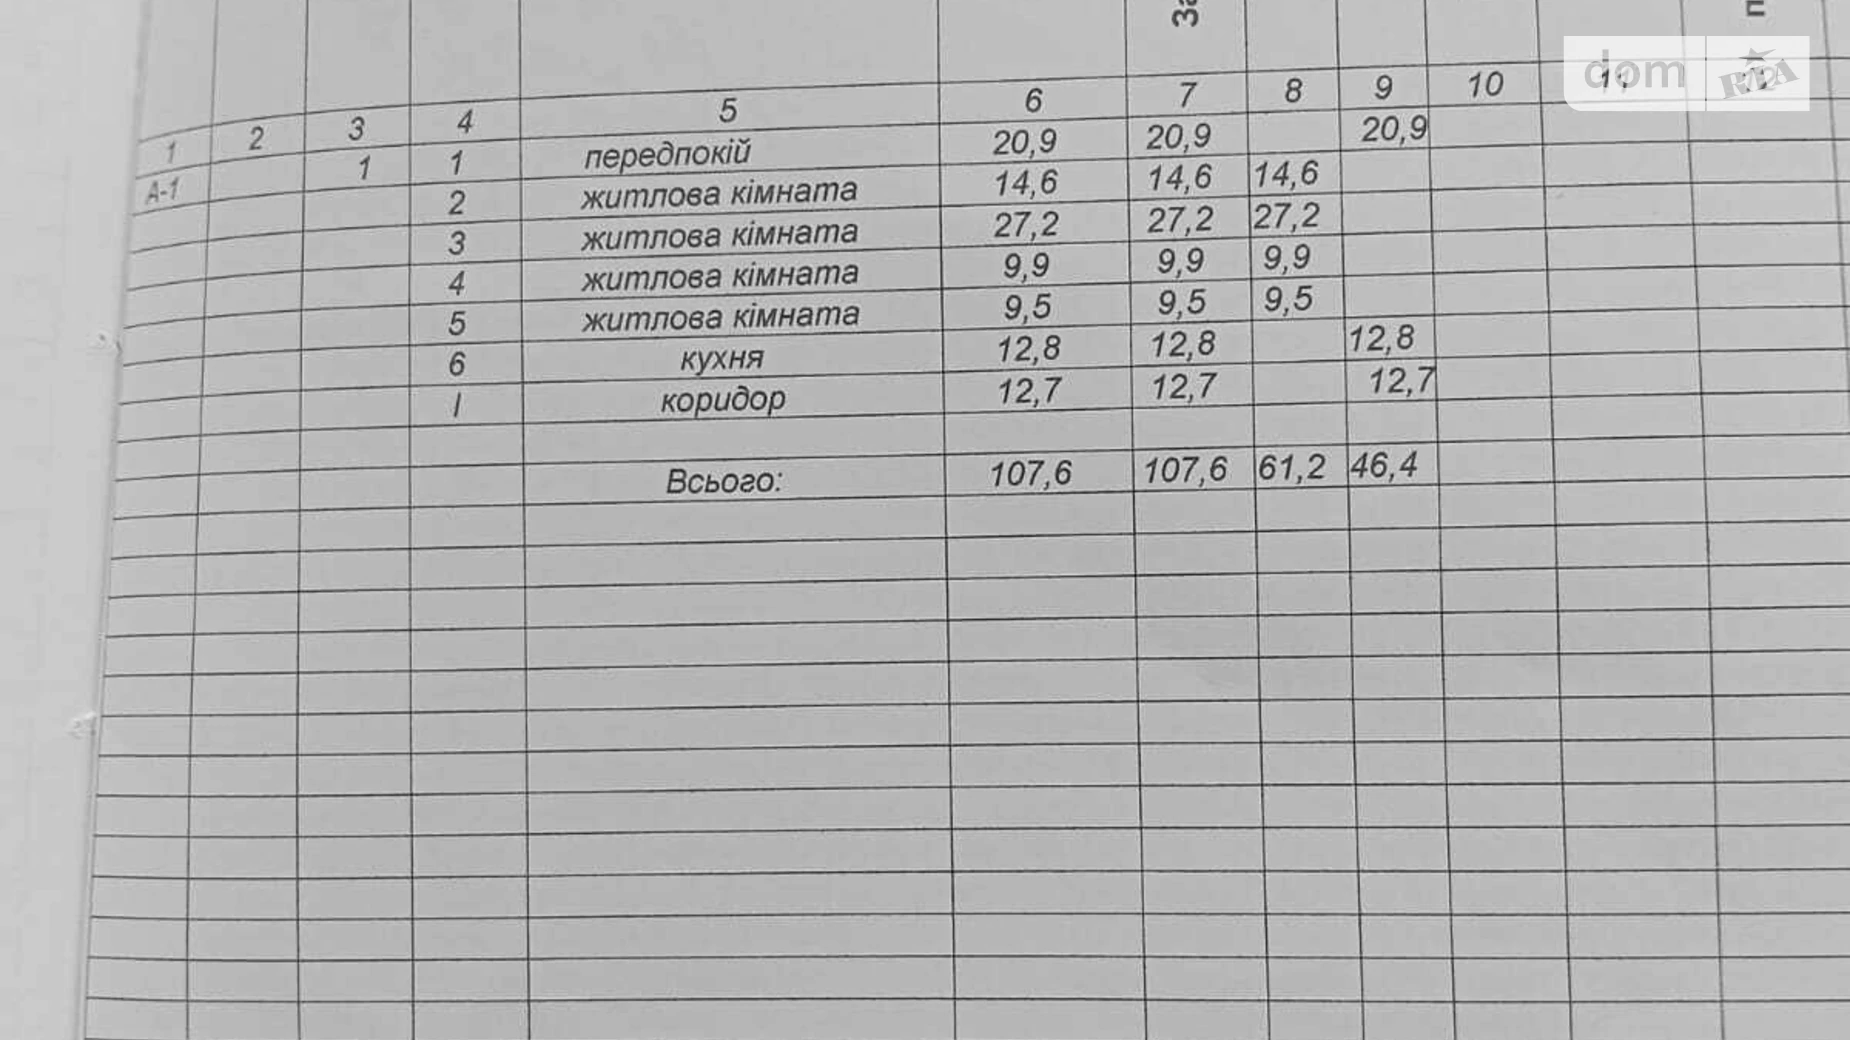 За
п
dom RIA
1 2 3 4 5 6 7 8 9 10 11 12
А-1 1 1 передпокій 20,9 20,9 20,9
2 житлова кімната 14,6 14,6 14,6
3 житлова кімната 27,2 27,2 27,2
4 житлова кімната 9,9 9,9 9,9
5 житлова кімната 9,5 9,5 9,5
6 кухня 12,8 12,8 12,8
I коридор 12,7 12,7 12,7
Всього: 107,6 107,6 61,2 46,4